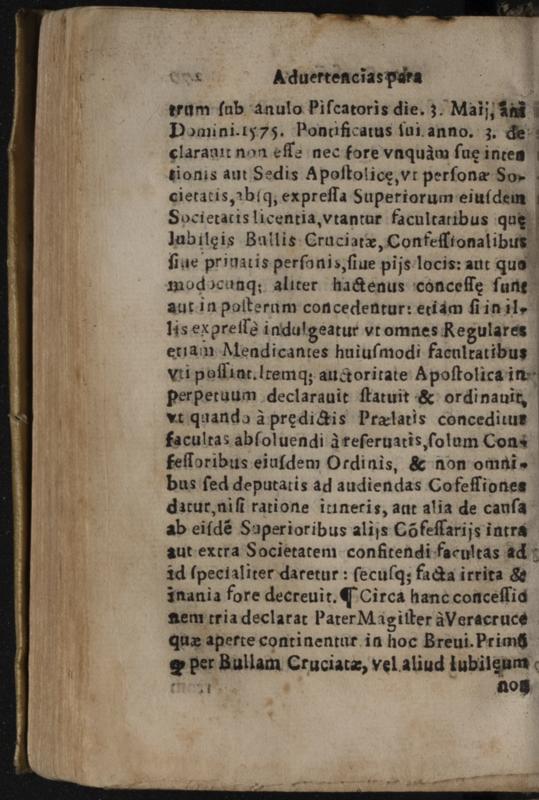 Aduertencias para
trum ſub anulo Piſcatoris die. 3. Maij, āni
Domini.1575. Pontificatus ſui anno. 3. de
clarauit non eſſe nec fore vnquàm ſuę inten
tionis aut Sedis Apoſtolicę, vt perſonæ So-
cietatis, abſq; expreſſa Superiorum eiuſdem
Societatis licentia, vtantur facultatibus quę
Iubilęis Bullis Cruciatæ, Confeſſionalibus
ſiue priuatis perſonis, ſiue pijs locis: aut quo
modocunq; aliter hactenus conceſſę ſunt
aut in poſterum concedentur: etiám ſi in il-
lis expreſſè indulgeatur vt omnes Regulares
etiam Mendicantes huiuſmodi facultatibus
vti poſſint. Itemq; auctoritate Apoſtolica in
perpetuum declarauit ſtatuit & ordinauit,
vt quando à prędictis Prælatis conceditur
facultas abſoluendi à reſeruatis, ſolum Con-
feſſoribus eiuſdem Ordinis, & non omni-
bus ſed deputatis ad audiendas Cofeſſiones
datur, niſi ratione itineris, aut alia de cauſa
ab eiſdē Superioribus alijs Cõfeſſarijs intra
aut extra Societatem confitendi facultas ad
id ſpecialiter daretur: ſecuſq; facta irrita &
inania fore decreuit. ¶ Circa hanc conceſſio
nem tria declarat Pater Magiſter à Veracruce
quæ aperte continentur in hoc Breui. Primò
ꝙ per Bullam Cruciatæ, vel aliud Iubilęum
non